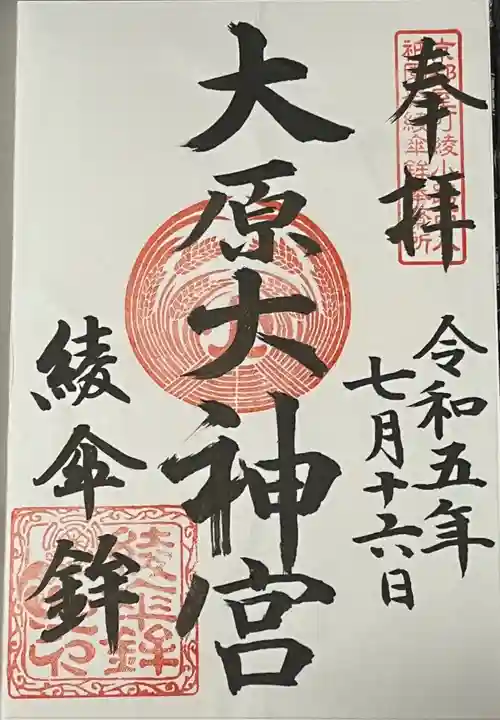 奉拝
令和五年
七月十六日
大原大神宮
綾傘鉾
綾傘鉾